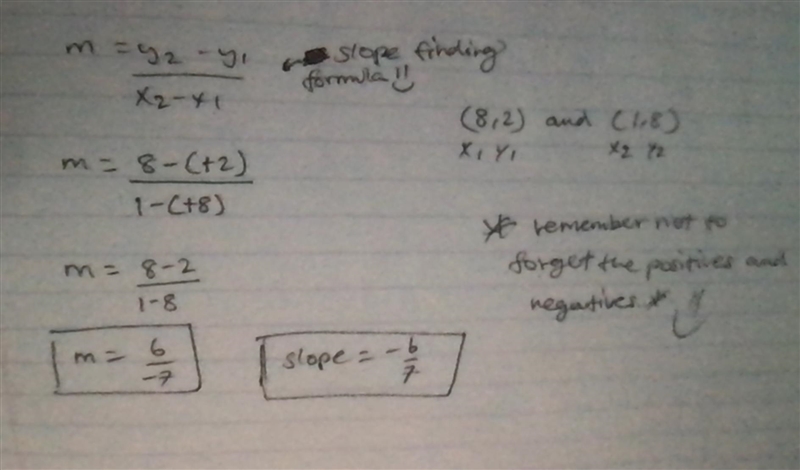 m = y₂ - y₁ / x₂ - x₁
slope finding
formula
(8,2) and (1,8)
x₁ y₁ x₂ y₂
m = 8 - (+2) / 1 - (+8)
* remember not to
forget the positives and
negatives *
m = 8 - 2 / 1 - 8
m = 6 / -7
slope = -6/7